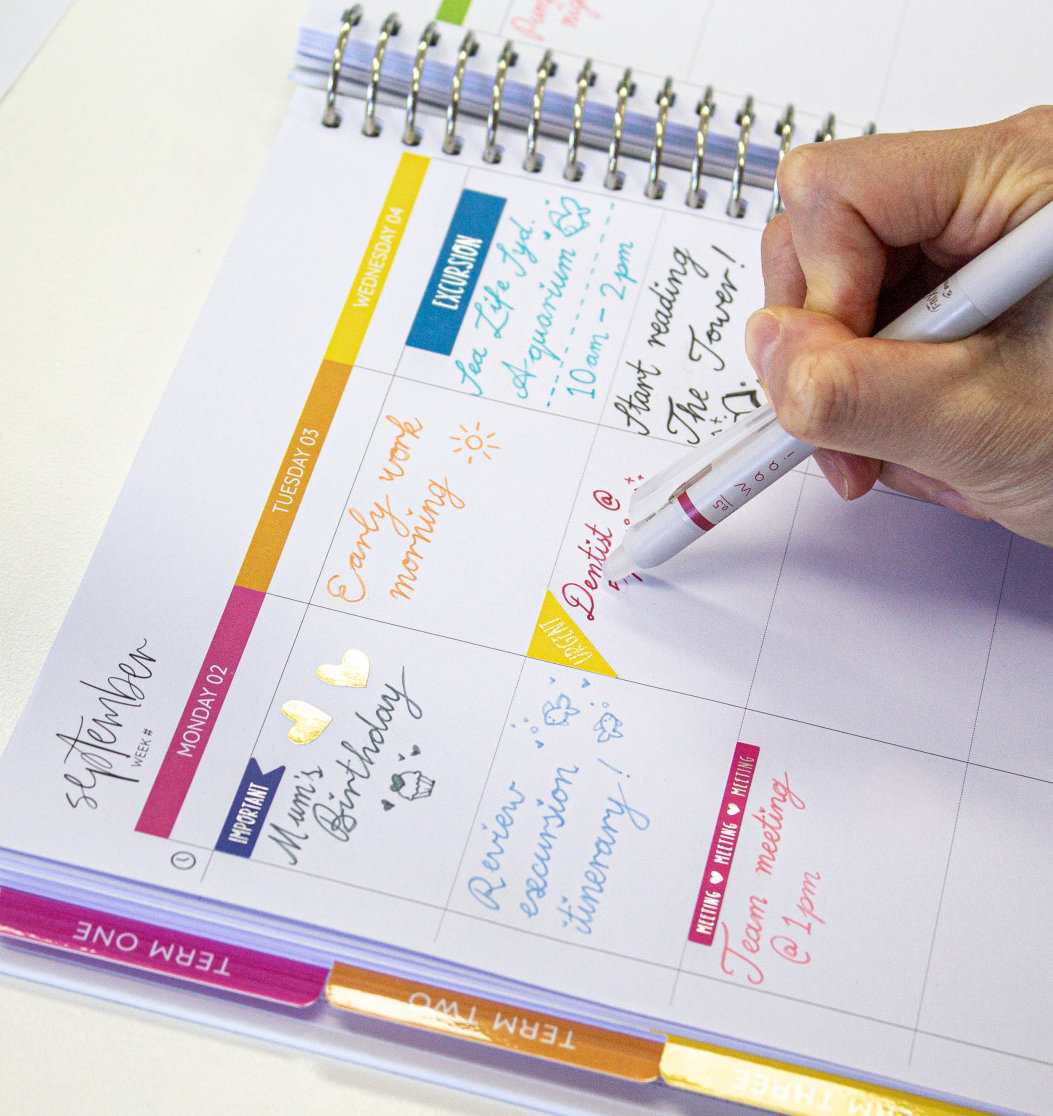 september
WEEK #
MONDAY 02
IMPORTANT
Mum's
Birthday
Review
excursion
itinerary!
MEETING ♥ MEETING ♥ MEETING
Team meeting
@ 1pm
TUESDAY 03
Early work
morning
URGENT
Dentist @
WEDNESDAY 04
EXCURSION
Sea Life Syd.
Aquarium
10am - 2pm
Start reading
The Tower!
TERM ONE
TERM TWO
TERM THREE
0.5